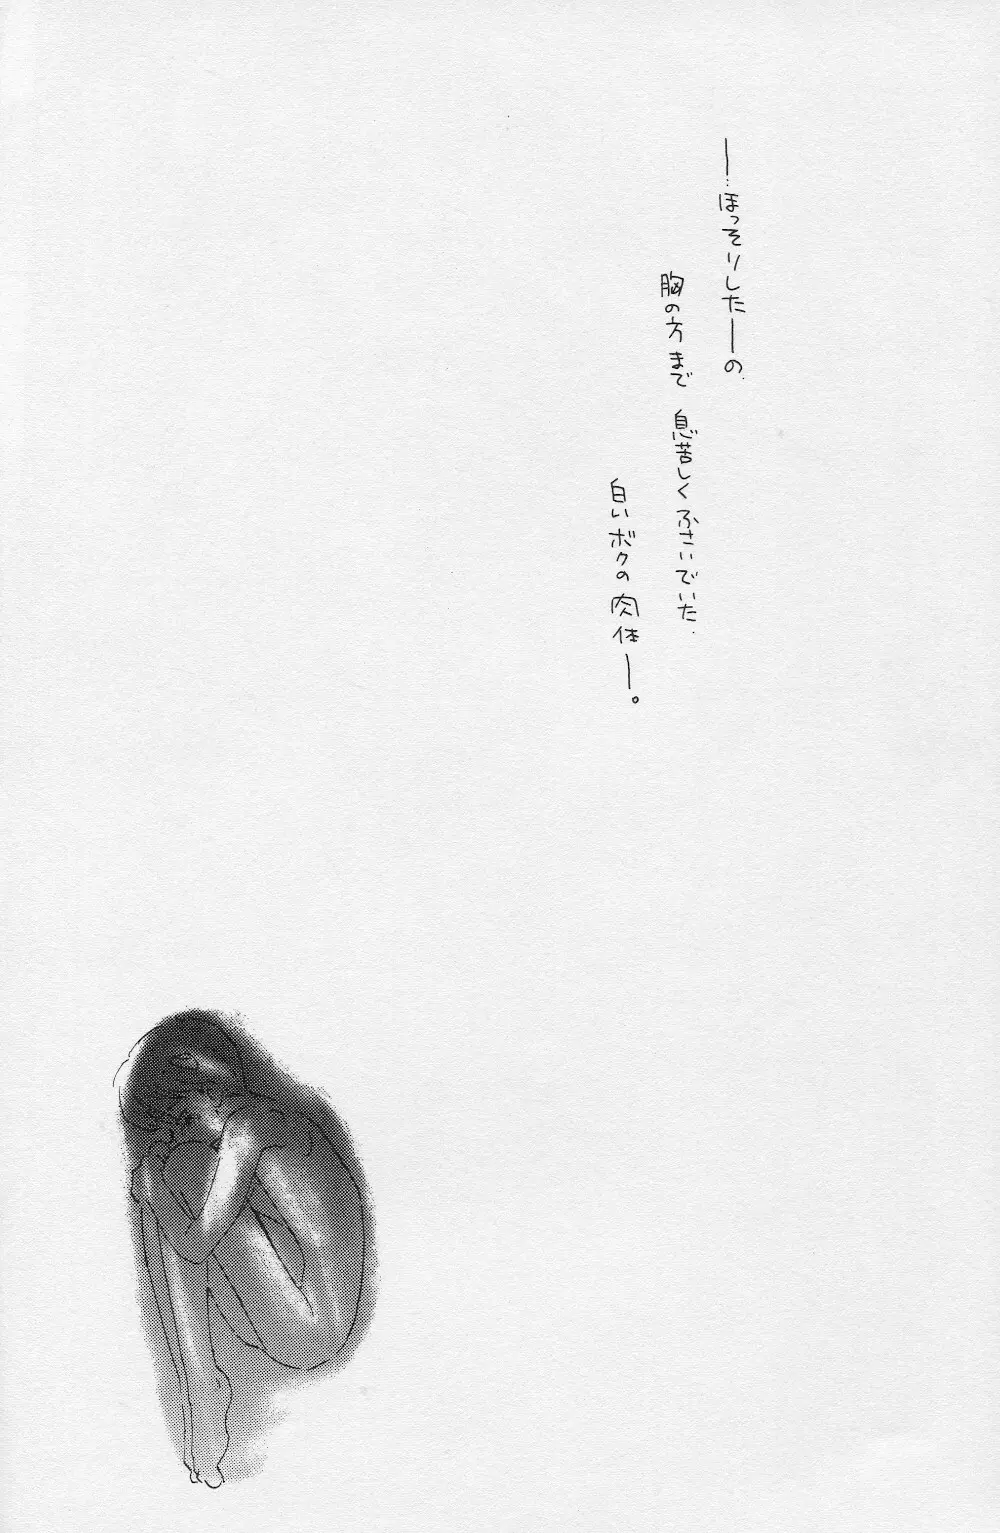 ―…ほっそりした―の
胸の方まで 息苦しくふさいでいた.
白いボクの肉体―。